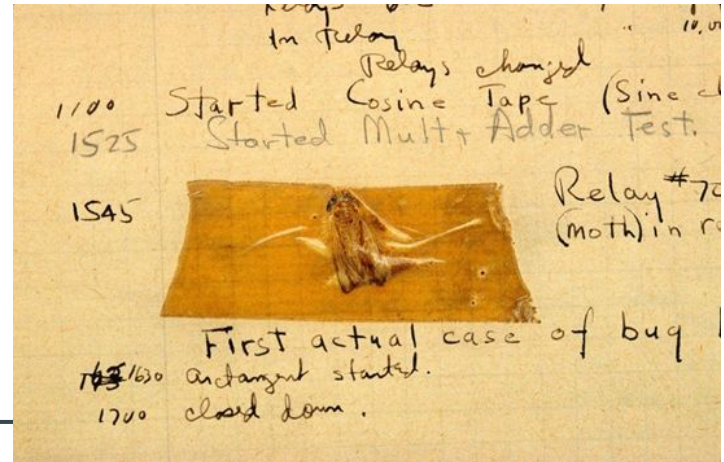 In Relay
Relays changed
1100 Started Cosine Tape (Sine
1525 Started Mult + Adder Test.
1545
Relay #70
(moth) in
First actual case of bug
1630 arctangent started.
1700 closed down.